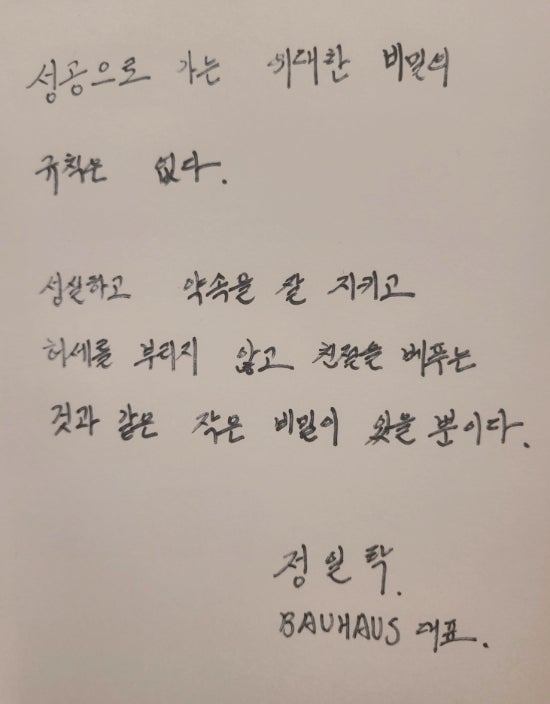 성공으로 가는 위대한 비밀의
규칙은 없다.
성실하고 약속을 잘 지키고
허세를 부리지 않고 친절을 베푸는
것과 같은 작은 비밀이 있을 뿐이다.
정일탁.
BAUHAUS 대표.